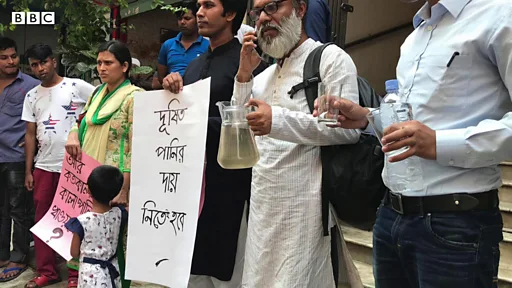 BBC
দূষিত
পানির
দায়
নিতে হবে
কতকাল